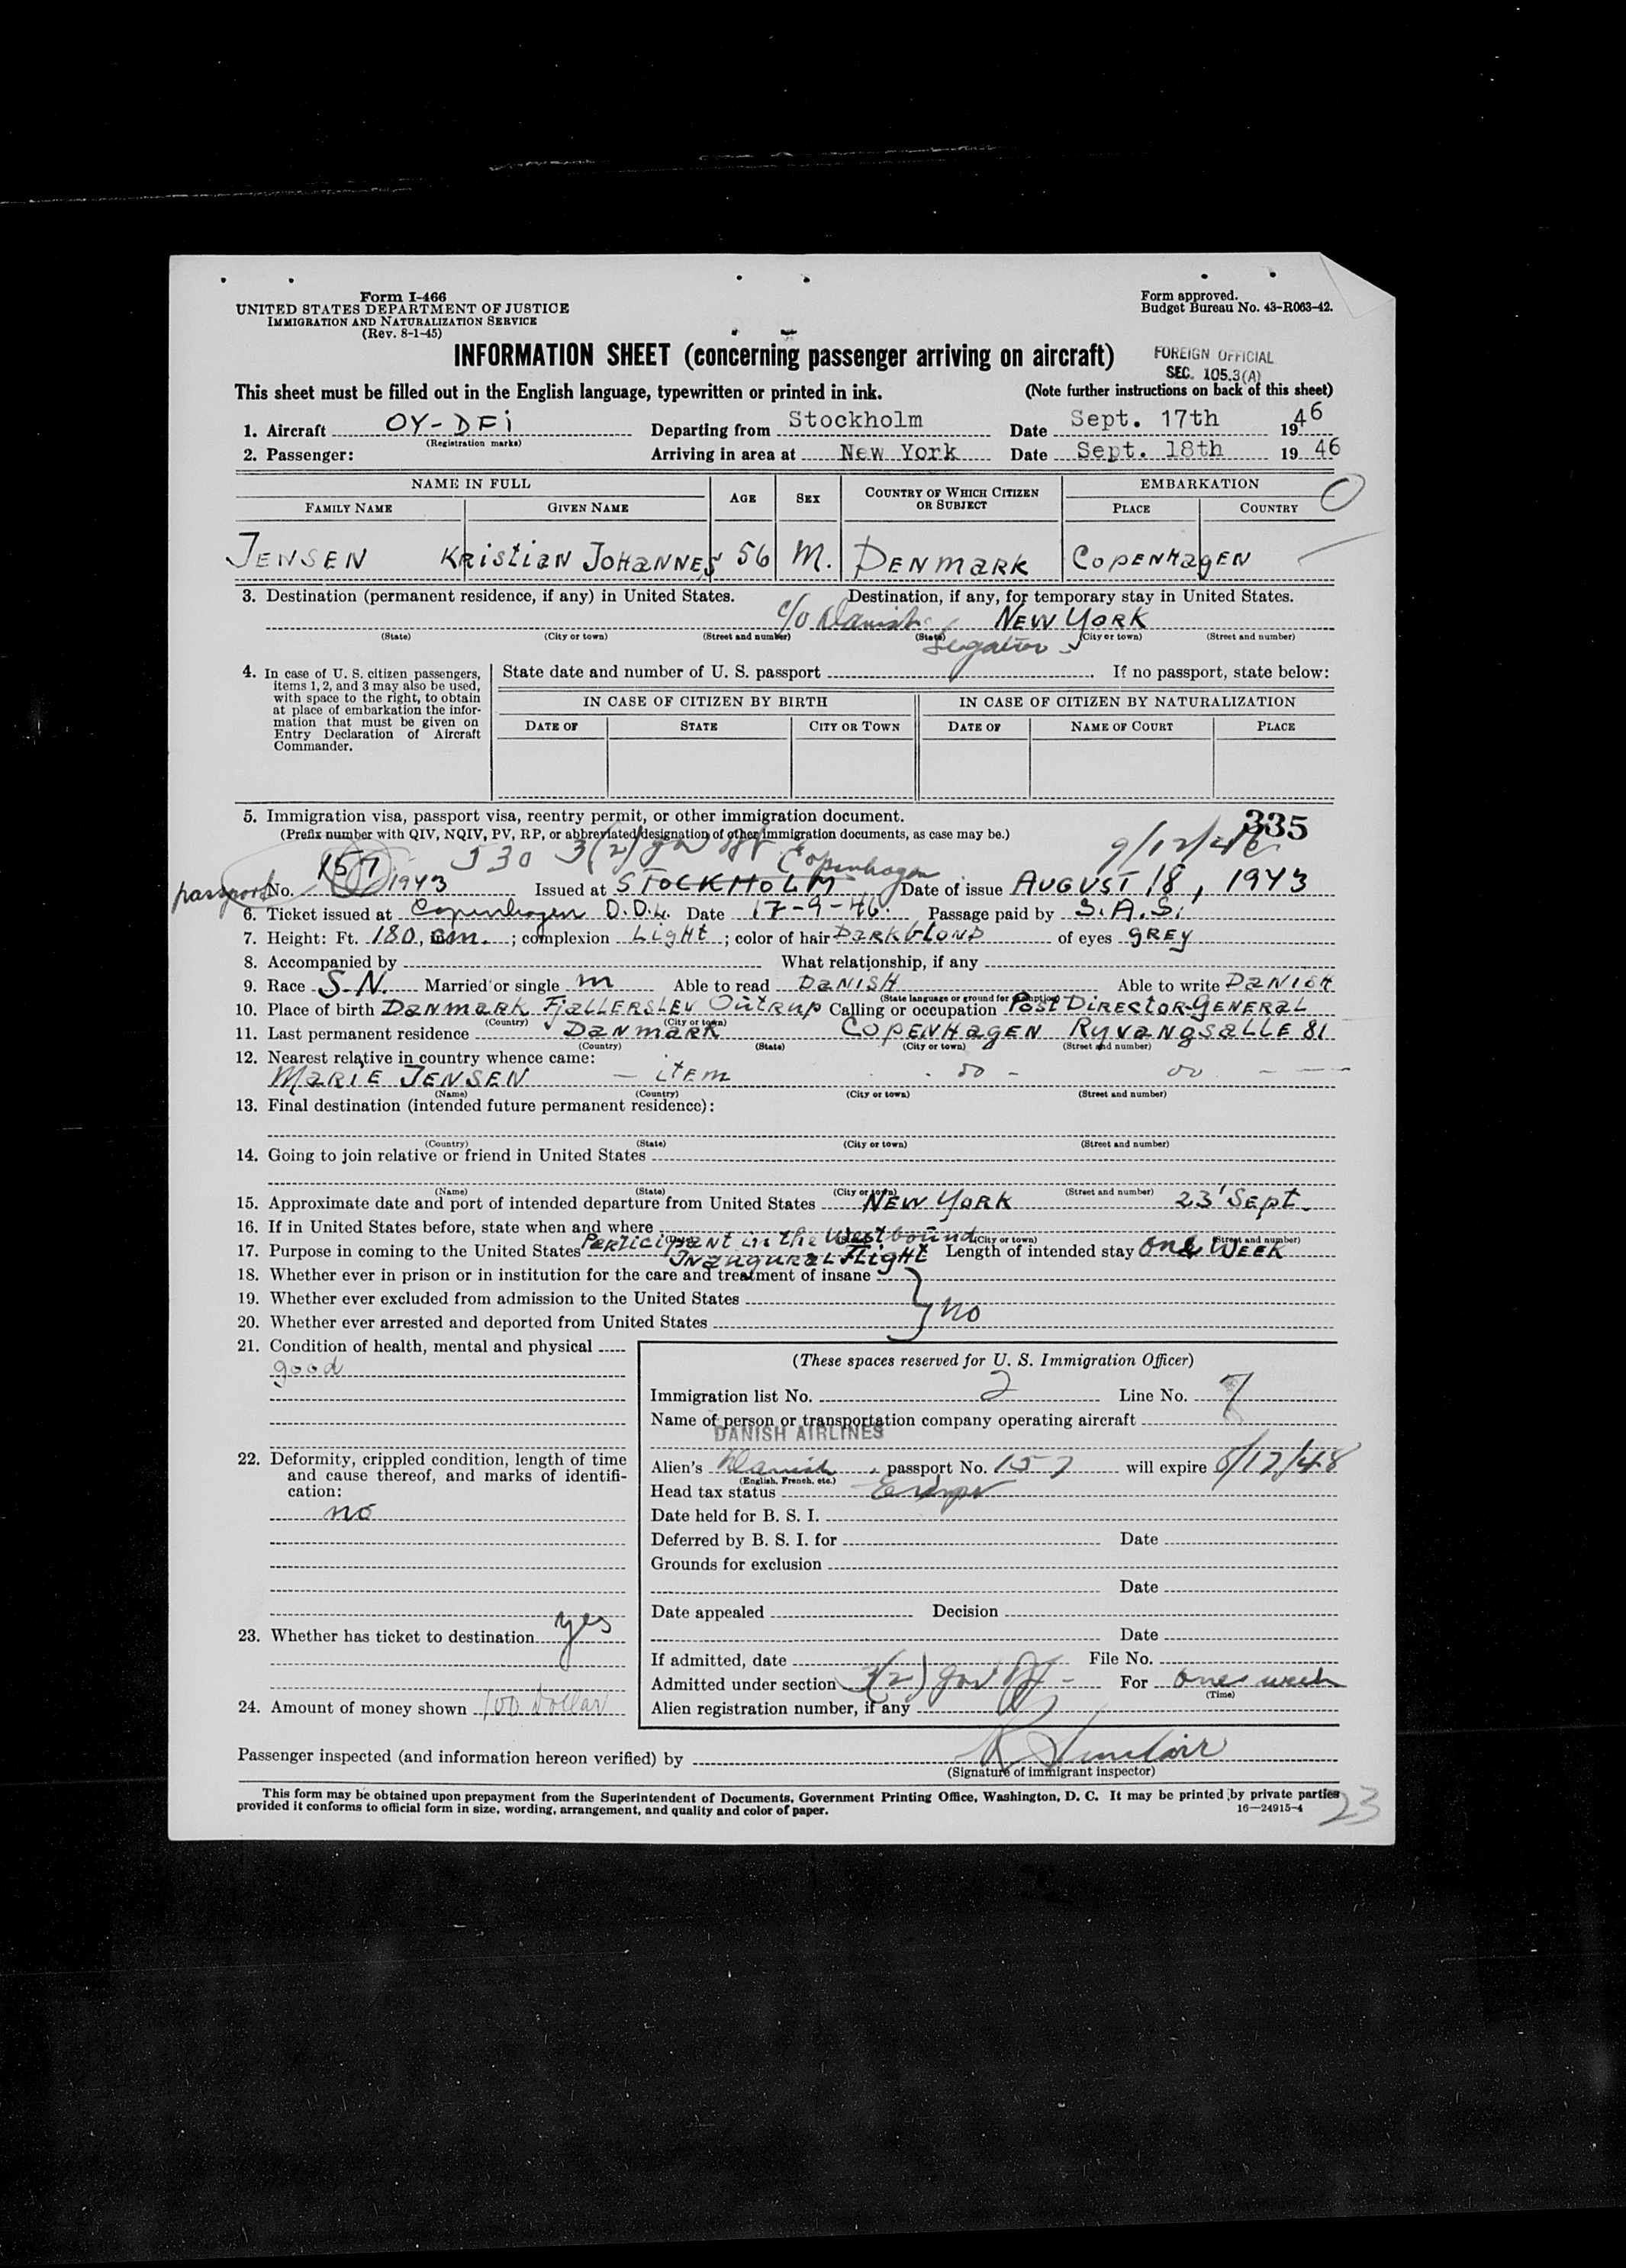 Form I-466
UNITED STATES DEPARTMENT OF JUSTICE
IMMIGRATION AND NATURALIZATION SERVICE
(Rev. 8-1-45)
Form approved.
Budget Bureau No. 43-R063-42.
INFORMATION SHEET (concerning passenger arriving on aircraft)
FOREIGN OFFICIAL
SEC. 105.3(A)
This sheet must be filled out in the English language, typewritten or printed in ink. (Note further instructions on back of this sheet)
1. Aircraft OY-DFI Departing from Stockholm Date Sept. 17th 1946
(Registration marks)
2. Passenger: Arriving in area at New York Date Sept. 18th 19 46
NAME IN FULL AGE SEX COUNTRY OF WHICH CITIZEN OR SUBJECT EMBARKATION
FAMILY NAME GIVEN NAME PLACE COUNTRY
JENSEN KRISTIAN JOHANNES 56 M. DENMARK COPENHAGEN
3. Destination (permanent residence, if any) in United States. Destination, if any, for temporary stay in United States.
c/o Danish Legation NEW YORK
(State) (City or town) (Street and number) (State) (City or town) (Street and number)
4. In case of U. S. citizen passengers, items 1, 2, and 3 may also be used, with space to the right, to obtain at place of embarkation the information that must be given on Entry Declaration of Aircraft Commander.
State date and number of U. S. passport If no passport, state below:
IN CASE OF CITIZEN BY BIRTH IN CASE OF CITIZEN BY NATURALIZATION
DATE OF STATE CITY OR TOWN DATE OF NAME OF COURT PLACE
5. Immigration visa, passport visa, reentry permit, or other immigration document. 335
(Prefix number with QIV, NQIV, PV, RP, or abbreviated designation of other immigration documents, as case may be.)
530 3(2) gov off Copenhagen 9/12/46
passport No. 157 1943 Issued at STOCKHOLM Date of issue AUGUST 18, 1943
6. Ticket issued at Copenhagen D.D.L. Date 17-9-46. Passage paid by S.A.S.
7. Height: Ft. 180, cm. ; complexion LIGHT ; color of hair DARKBLOND of eyes GREY
8. Accompanied by What relationship, if any
9. Race S.N. Married or single m Able to read DANISH Able to write DANISH
(State language or ground for exemption)
10. Place of birth DANMARK FJALLERSLEV OUTRUP Calling or occupation POST DIRECTOR-GENERAL
(Country) (City or town)
11. Last permanent residence DANMARK COPENHAGEN RYVANGSALLE 81
(Country) (State) (City or town) (Street and number)
12. Nearest relative in country whence came:
MARIE JENSEN - ITEM
(Name) (Country) (City or town) (Street and number)
13. Final destination (intended future permanent residence):
(Country) (State) (City or town) (Street and number)
14. Going to join relative or friend in United States
(Name) (State) (City or town) (Street and number)
15. Approximate date and port of intended departure from United States NEW YORK 23' Sept.
16. If in United States before, state when and where
(City or town) (Street and number)
17. Purpose in coming to the United States Participant in the Westbound Inaugural Flight Length of intended stay One WEEK
18. Whether ever in prison or in institution for the care and treatment of insane
19. Whether ever excluded from admission to the United States } no
20. Whether ever arrested and deported from United States
21. Condition of health, mental and physical
good
(These spaces reserved for U. S. Immigration Officer)
Immigration list No. 2 Line No. 7
Name of person or transportation company operating aircraft
DANISH AIRLINES
22. Deformity, crippled condition, length of time and cause thereof, and marks of identification:
no
Alien's Danish, passport No. 157 will expire 8/17/48
(English, French, etc.)
Head tax status Exempt
Date held for B. S. I.
Deferred by B. S. I. for Date
Grounds for exclusion
Date
Date appealed Decision
23. Whether has ticket to destination yes
Date
If admitted, date File No.
Admitted under section 3(2) gov off - For one week
(Time)
24. Amount of money shown 100 Dollar
Alien registration number, if any
Passenger inspected (and information hereon verified) by R Sinclair
(Signature of immigrant inspector)
This form may be obtained upon prepayment from the Superintendent of Documents, Government Printing Office, Washington, D. C. It may be printed by private parties
provided it conforms to official form in size, wording, arrangement, and quality and color of paper. 16—24915-4
23